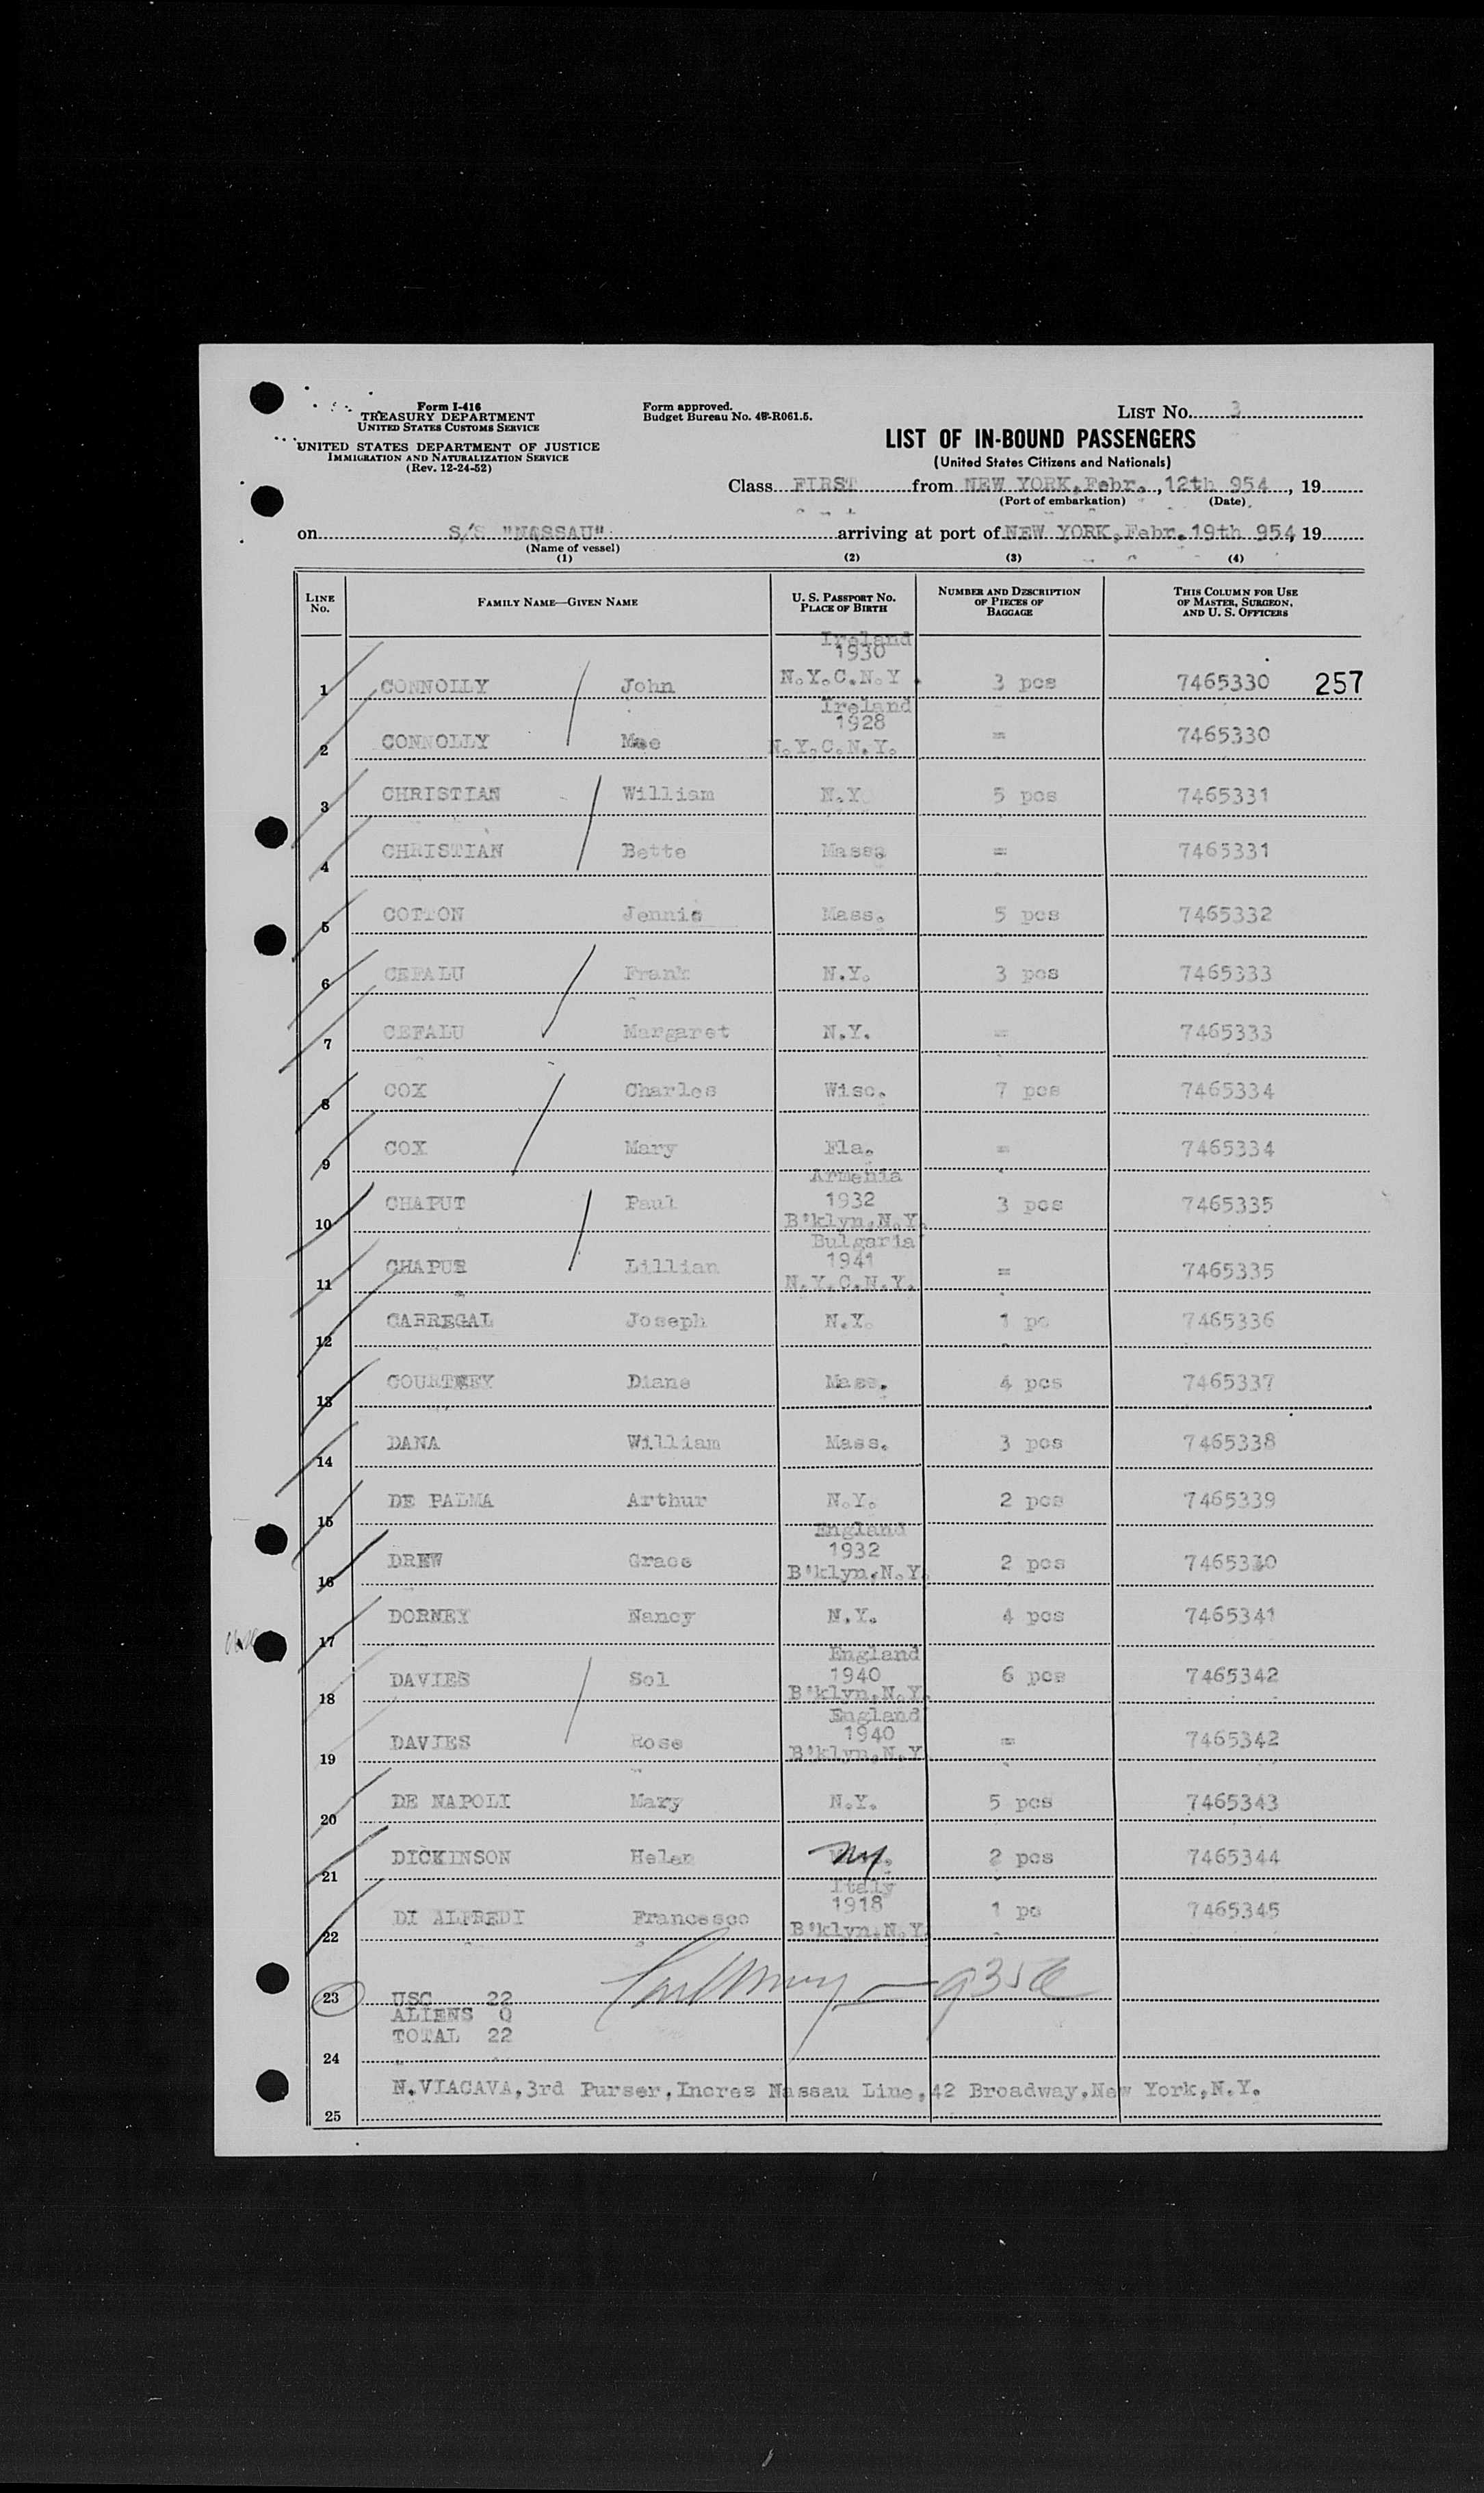 Form I-416
TREASURY DEPARTMENT
UNITED STATES CUSTOMS SERVICE
UNITED STATES DEPARTMENT OF JUSTICE
IMMIGRATION AND NATURALIZATION SERVICE
(Rev. 12-24-52)
Form approved.
Budget Bureau No. 43-R061.5.
LIST No. 3
LIST OF IN-BOUND PASSENGERS
(United States Citizens and Nationals)
Class FIRST from NEW YORK, Febr. , 12th 954 , 19
(Port of embarkation) (Date)
on S/S "NASSAU" arriving at port of NEW YORK, Febr. 19th 954, 19
(Name of vessel)
(1) (2) (3) (4)
LINE No. FAMILY NAME—GIVEN NAME U. S. PASSPORT No. PLACE OF BIRTH NUMBER AND DESCRIPTION OF PIECES OF BAGGAGE THIS COLUMN FOR USE OF MASTER, SURGEON, AND U. S. OFFICERS
Ireland
1930
1 CONNOLLY John N.Y.C.N.Y. 3 pcs 7465330 257
Ireland
1928
2 CONNOLLY Mae N.Y.C.N.Y. = 7465330
3 CHRISTIAN William N.Y. 5 pcs 7465331
4 CHRISTIAN Bette Mass. = 7465331
5 COTTON Jennie Mass. 5 pcs 7465332
6 CEFALU Frank N.Y. 3 pcs 7465333
7 CEFALU Margaret N.Y. = 7465333
8 COX Charles Wisc. 7 pcs 7465334
9 COX Mary Fla. = 7465334
Armenia
1932
10 CHAPUT Paul B'klyn,N.Y. 3 pcs 7465335
Bulgaria
1941
11 CHAPUT Lillian N.Y.C.N.Y. = 7465335
12 CARREGAL Joseph N.Y. 1 pc 7465336
13 COURTNEY Diane Mass. 4 pcs 7465337
14 DANA William Mass. 3 pcs 7465338
15 DE PALMA Arthur N.Y. 2 pcs 7465339
England
1932
16 DREW Grace B'klyn,N.Y. 2 pcs
17 DORNEY Nancy N.Y. 4 pcs 7465341
England
1940
18 DAVIES Sol B'klyn,N.Y. 6 pcs 7465342
England
1940
19 DAVIES Rose B'klyn,N.Y. = 7465342
20 DE NAPOLI Mary N.Y. 5 pcs 7465343
21 DICKINSON Helen NY 2 pcs 7465344
Italy
1918
22 DI ALFREDI Francesco B'klyn,N.Y. 1 pc 7465345
23 USC 22
ALIENS 0
TOTAL 22
24
N.VIACAVA,3rd Purser,Incres Nassau Line,42 Broadway,New York,N.Y.
25